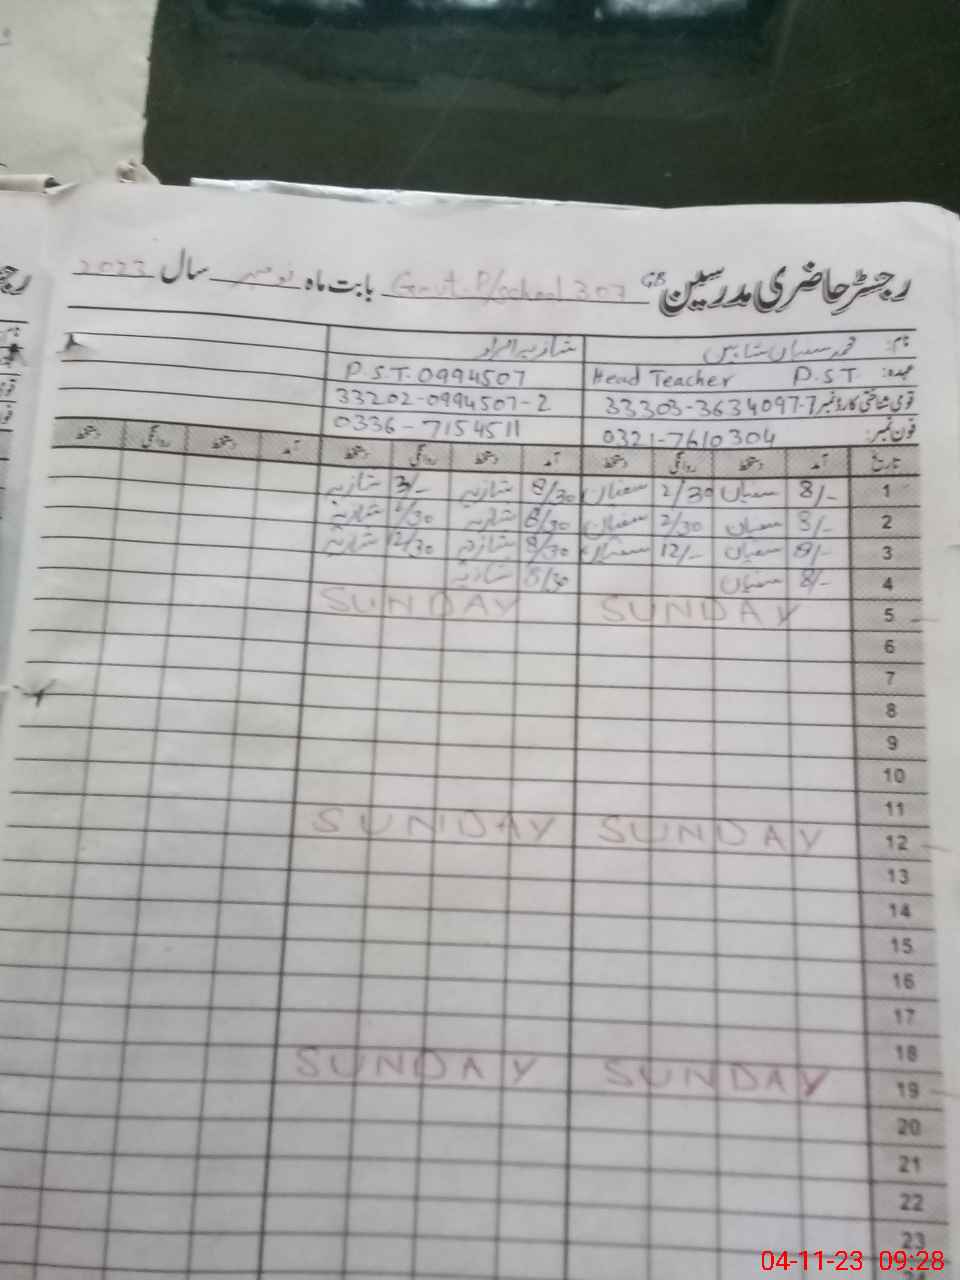 رجسٹر حاضری مدرسین GB Govt. P/school 307 بابت ماہ نومبر سال 2023
نام: محمد سفیان شاہین شازیہ
عہدہ: Head Teacher P.S.T P.S.T. 0994507
قومی شناختی کارڈ نمبر 33303-3634097-7 33202-0994507-2
فون نمبر: 0321-7610304 0336-7154511
تاریخ آمد دستخط روانگی دستخط آمد دستخط روانگی دستخط آمد دستخط روانگی دستخط
1 8/- سفیان 2/30 سفیان 8/30 شازیہ 3/- شازیہ
2 8/- سفیان 2/30 سفیان 8/30 شازیہ 2/30 شازیہ
3 8/- سفیان 12/- سفیان 8/30 شازیہ 12/30 شازیہ
4 8/- سفیان 8/30 شازیہ
5 SUNDAY SUNDAY
6
7
8
9
10
11
12 SUNDAY SUNDAY
13
14
15
16
17
18
19 SUNDAY SUNDAY
20
21
22
23
04-11-23 09:28